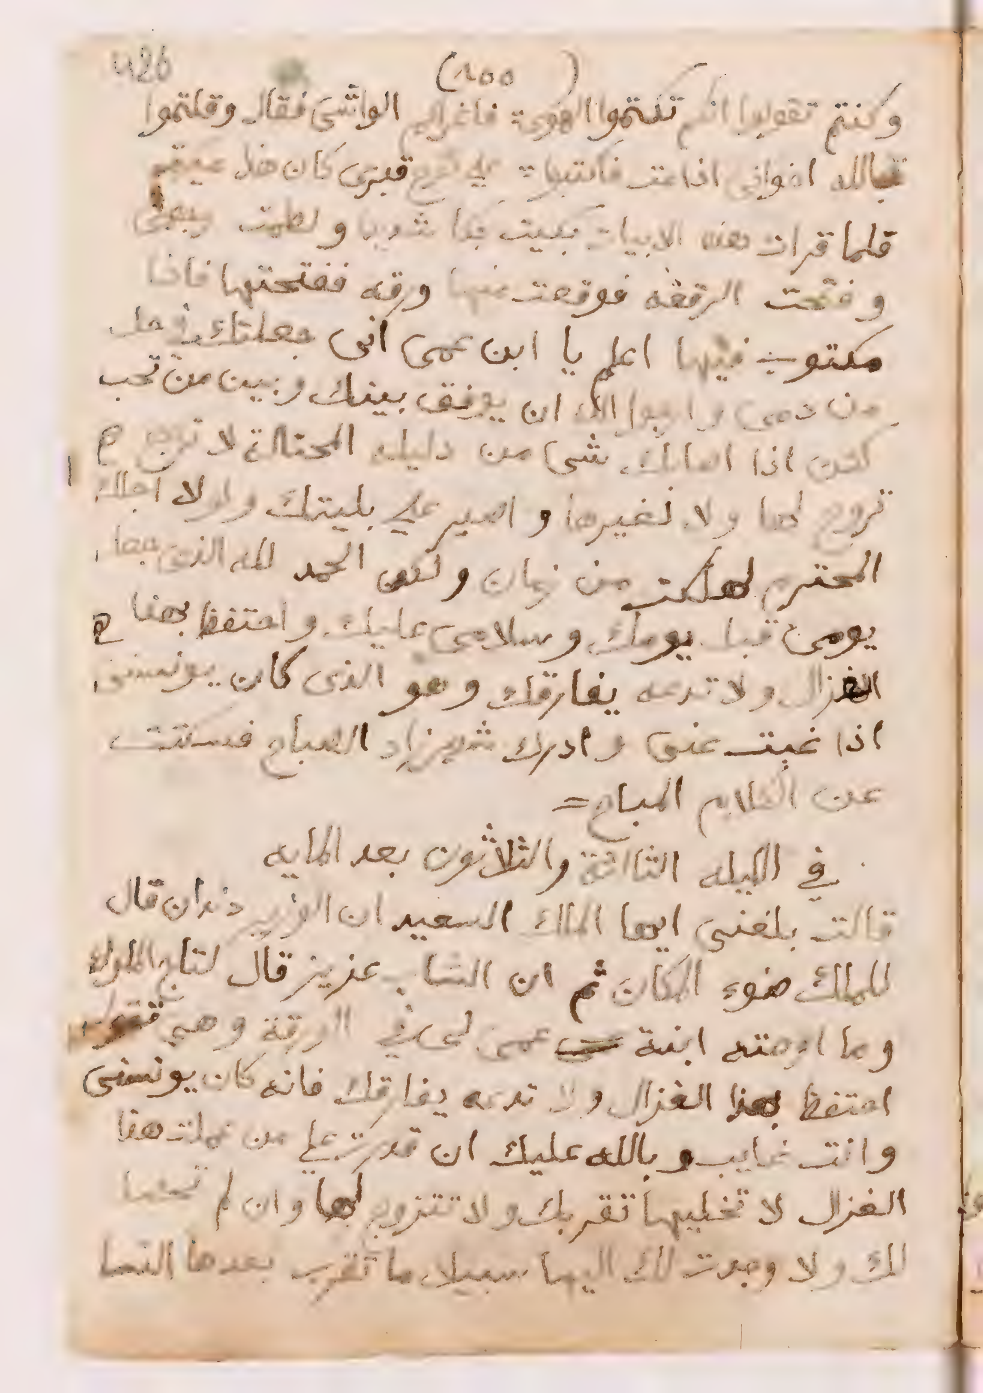 426 (٨٥٥)
وكنتم تقولوا انكم تكتموا الهوى فاغراكم الواشى فقال وقلتموا
فبالله اخوانى اذا مت فاكتبوا على لوح قبرى كان هذا متيم
فلما قرات هذه الابيات بكيت بكا شديدا ولطمت وجهى
وفتحت الرقعه فوقعت منها ورقه ففتحتها فاذا
مكتوب فيها اعلم يا ابن عمى انى جعلتك فى حل
من دمى وارجوا الله ان يوفق بينك وبين من تحب
لكن اذا اصابك شى من دليله المحتالة لا ترجع
تروح لها ولا لغيرها واصبر على بليتك ولولا اجلك
المحترم لهلكت من زمان ولكن الحمد لله الذى جعل
يومى قبل يومك وسلامى عليك واحتفظ بهذا
الغزال ولا تدعه يفارقك وهو الذى كان يونسنى
اذا غبت عنى وادرك شهرزاد الصباح فسكتت
عن الكلام المباح=
في الليله الثالثة والثلاثون بعد المايه
قالت بلغنى ايها الملك السعيد ان الوزير دندان قال
للملك ضوء المكان ثم ان الشاب عزيز قال لتاج الملوك
وما اوصته ابنة عمى لى في الورقة وهى تقول
احتفظ بهذا الغزال ولا تدعه يفارقك فانه كان يونسنى
وانت غايب وبالله عليك ان قدرت على من عملت هذا
الغزال لا تخليها تقربك ولا تتزوج لها وان لم تحصل
لك ولا وجدت لك اليها سبيلا ما تقرب بعدها النسا